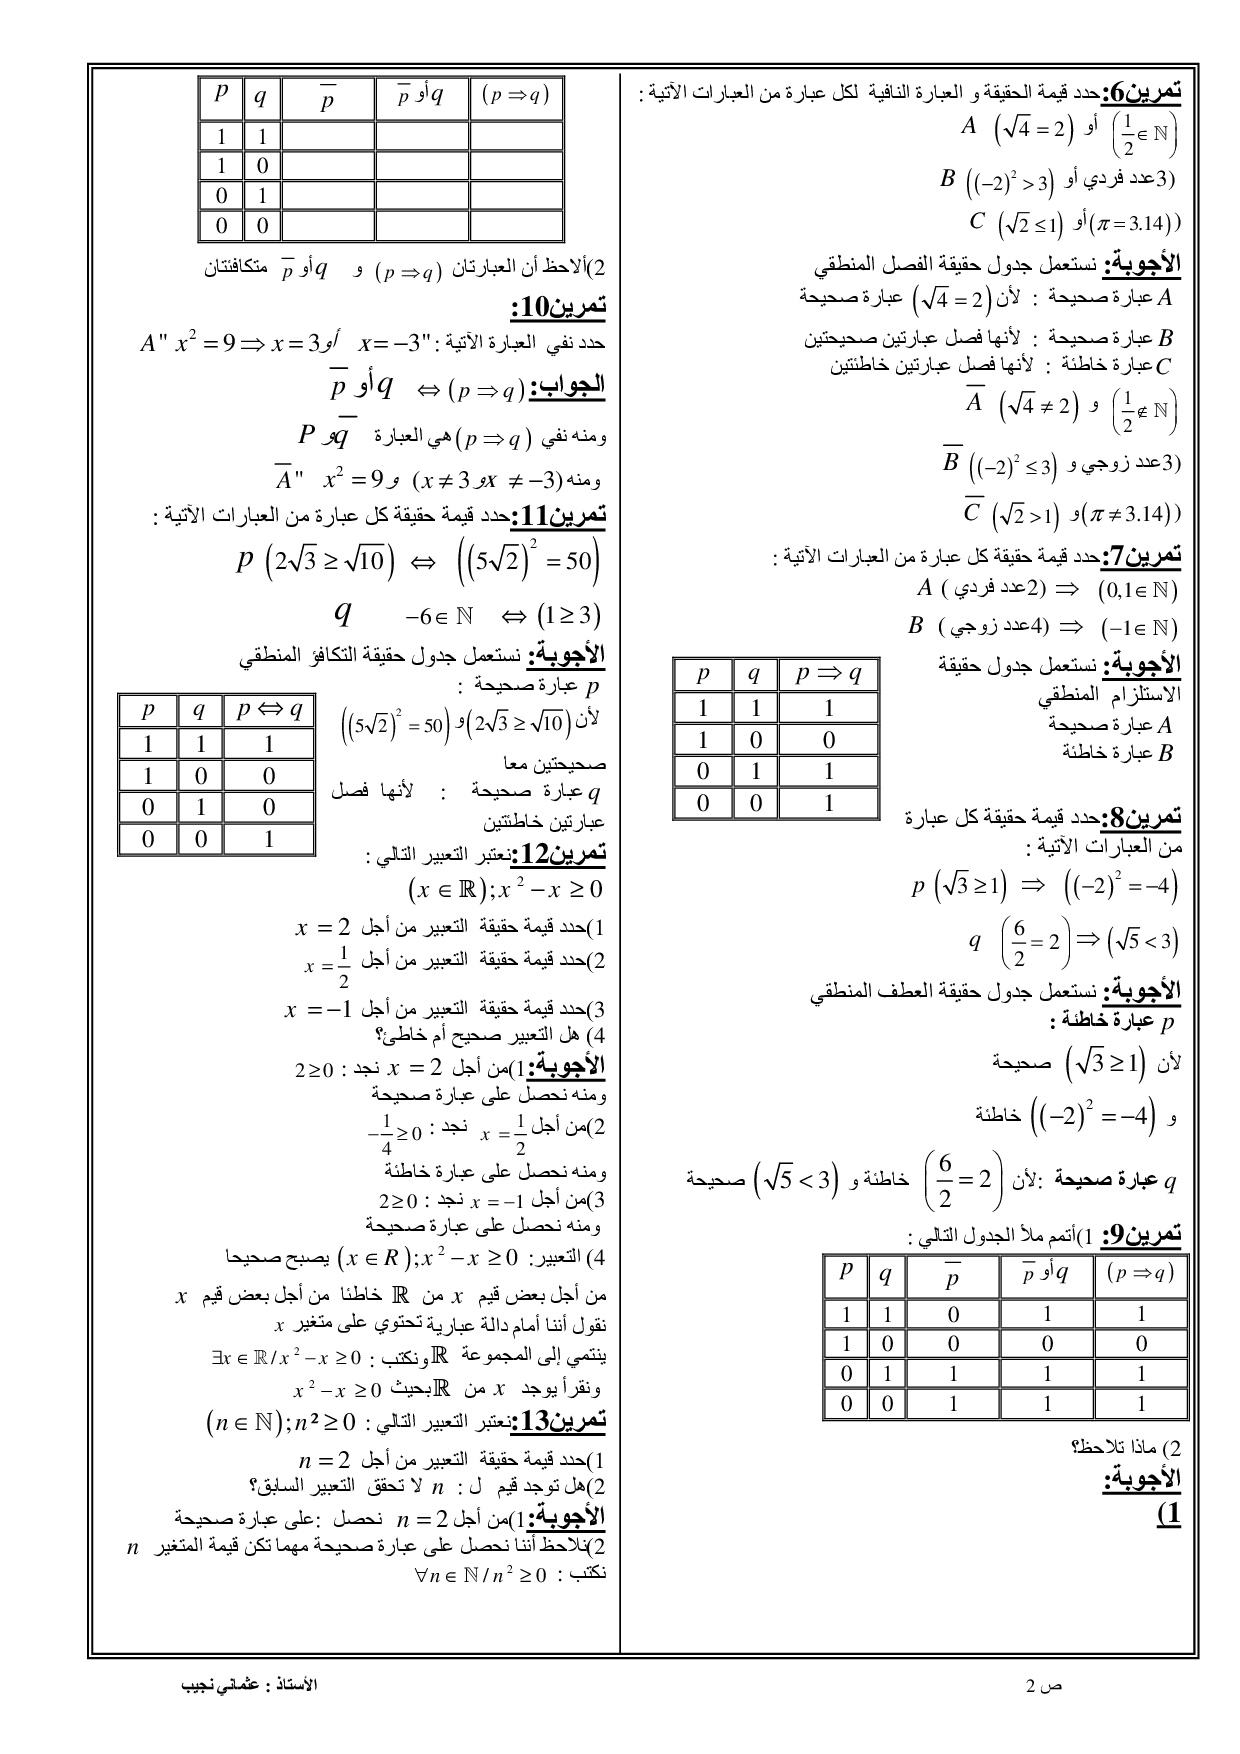 تمرين6:حدد قيمة الحقيقة و العبارة النافية لكل عبارة من العبارات الآتية :
A (√4 = 2) أو (1/2 ∈ ℕ)
B ((−2)² > 3) أو 3عدد فردي)
C (√2 ≤ 1) أو (π = 3.14) (
الأجوبة: نستعمل جدول حقيقة الفصل المنطقي
A عبارة صحيحة : لأن (√4 = 2) عبارة صحيحة
B عبارة صحيحة : لأنها فصل عبارتين صحيحتين
C عبارة خاطئة : لأنها فصل عبارتين خاطئتين
A̅ (√4 ≠ 2) و (1/2 ∉ ℕ)
B̅ ((−2)² ≤ 3) و 3عدد زوجي)
C̅ (√2 > 1) و (π ≠ 3.14) (
تمرين7:حدد قيمة حقيقة كل عبارة من العبارات الآتية :
A ( 2عدد فردي) ⇒ (0,1 ∈ ℕ)
B ( 4عدد زوجي) ⇒ (−1 ∈ ℕ)
الأجوبة: نستعمل جدول حقيقة
الاستلزام المنطقي
A عبارة صحيحة
B عبارة خاطئة
p q p ⇒ q
1 1 1
1 0 0
0 1 1
0 0 1
تمرين8:حدد قيمة حقيقة كل عبارة
من العبارات الآتية :
p (√3 ≥ 1) ⇒ ((−2)² = −4)
q (6/2 = 2) ⇒ (√5 < 3)
الأجوبة: نستعمل جدول حقيقة العطف المنطقي
p عبارة خاطئة :
لأن (√3 ≥ 1) صحيحة
و ((−2)² = −4) خاطئة
q عبارة صحيحة :لأن (6/2 = 2) خاطئة و (√5 < 3) صحيحة
تمرين9: 1)أتمم ملأ الجدول التالي :
p q p̅ p̅ أو q (p ⇒ q)
1 1 0 1 1
1 0 0 0 0
0 1 1 1 1
0 0 1 1 1
2) ماذا تلاحظ؟
الأجوبة:
1)
p q p̅ p̅ أو q (p ⇒ q)
1 1
1 0
0 1
0 0
2)ألاحظ أن العبارتان (p ⇒ q) و p̅ أو q متكافئتان
تمرين10:
حدد نفي العبارة الآتية : A " x² = 9 ⇒ x = 3 أو x = −3"
الجواب: (p ⇒ q) ⇔ p̅ أو q
ومنه نفي (p ⇒ q) هي العبارة P و q̅
ومنه A̅ " x² = 9 و (x ≠ 3 و x ≠ −3)
تمرين11:حدد قيمة حقيقة كل عبارة من العبارات الآتية :
p (2√3 ≥ √10) ⇔ ((5√2)² = 50)
q −6 ∈ ℕ ⇔ (1 ≥ 3)
الأجوبة: نستعمل جدول حقيقة التكافؤ المنطقي
p عبارة صحيحة :
لأن (2√3 ≥ √10) و ((5√2)² = 50)
صحيحتين معا
q عبارة صحيحة : لأنها فصل
عبارتين خاطئتين
p q p ⇔ q
1 1 1
1 0 0
0 1 0
0 0 1
تمرين12:نعتبر التعبير التالي :
(x ∈ ℝ); x² − x ≥ 0
1)حدد قيمة حقيقة التعبير من أجل x = 2
2)حدد قيمة حقيقة التعبير من أجل x = 1/2
3)حدد قيمة حقيقة التعبير من أجل x = −1
4) هل التعبير صحيح أم خاطئ؟
الأجوبة:1)من أجل x = 2 نجد : 2 ≥ 0
ومنه نحصل على عبارة صحيحة
2)من أجل x = 1/2 نجد : −1/4 ≥ 0
ومنه نحصل على عبارة خاطئة
3)من أجل x = −1 نجد : 2 ≥ 0
ومنه نحصل على عبارة صحيحة
4) التعبير: (x ∈ R); x² − x ≥ 0 يصبح صحيحا
من أجل بعض قيم x من ℝ خاطئا من أجل بعض قيم x
نقول أننا أمام دالة عبارية تحتوي على متغير x
ينتمي إلى المجموعة ℝ ونكتب : ∃x ∈ ℝ / x² − x ≥ 0
ونقرأ يوجد x من ℝ بحيث x² − x ≥ 0
تمرين13:نعتبر التعبير التالي : (n ∈ ℕ); n² ≥ 0
1)حدد قيمة حقيقة التعبير من أجل n = 2
2)هل توجد قيم ل : n لا تحقق التعبير السابق؟
الأجوبة:1)من أجل n = 2 نحصل :على عبارة صحيحة
2)نلاحظ أننا نحصل على عبارة صحيحة مهما تكن قيمة المتغير n
نكتب : ∀n ∈ ℕ / n² ≥ 0
ص 2
الأستاذ : عثماني نجيب